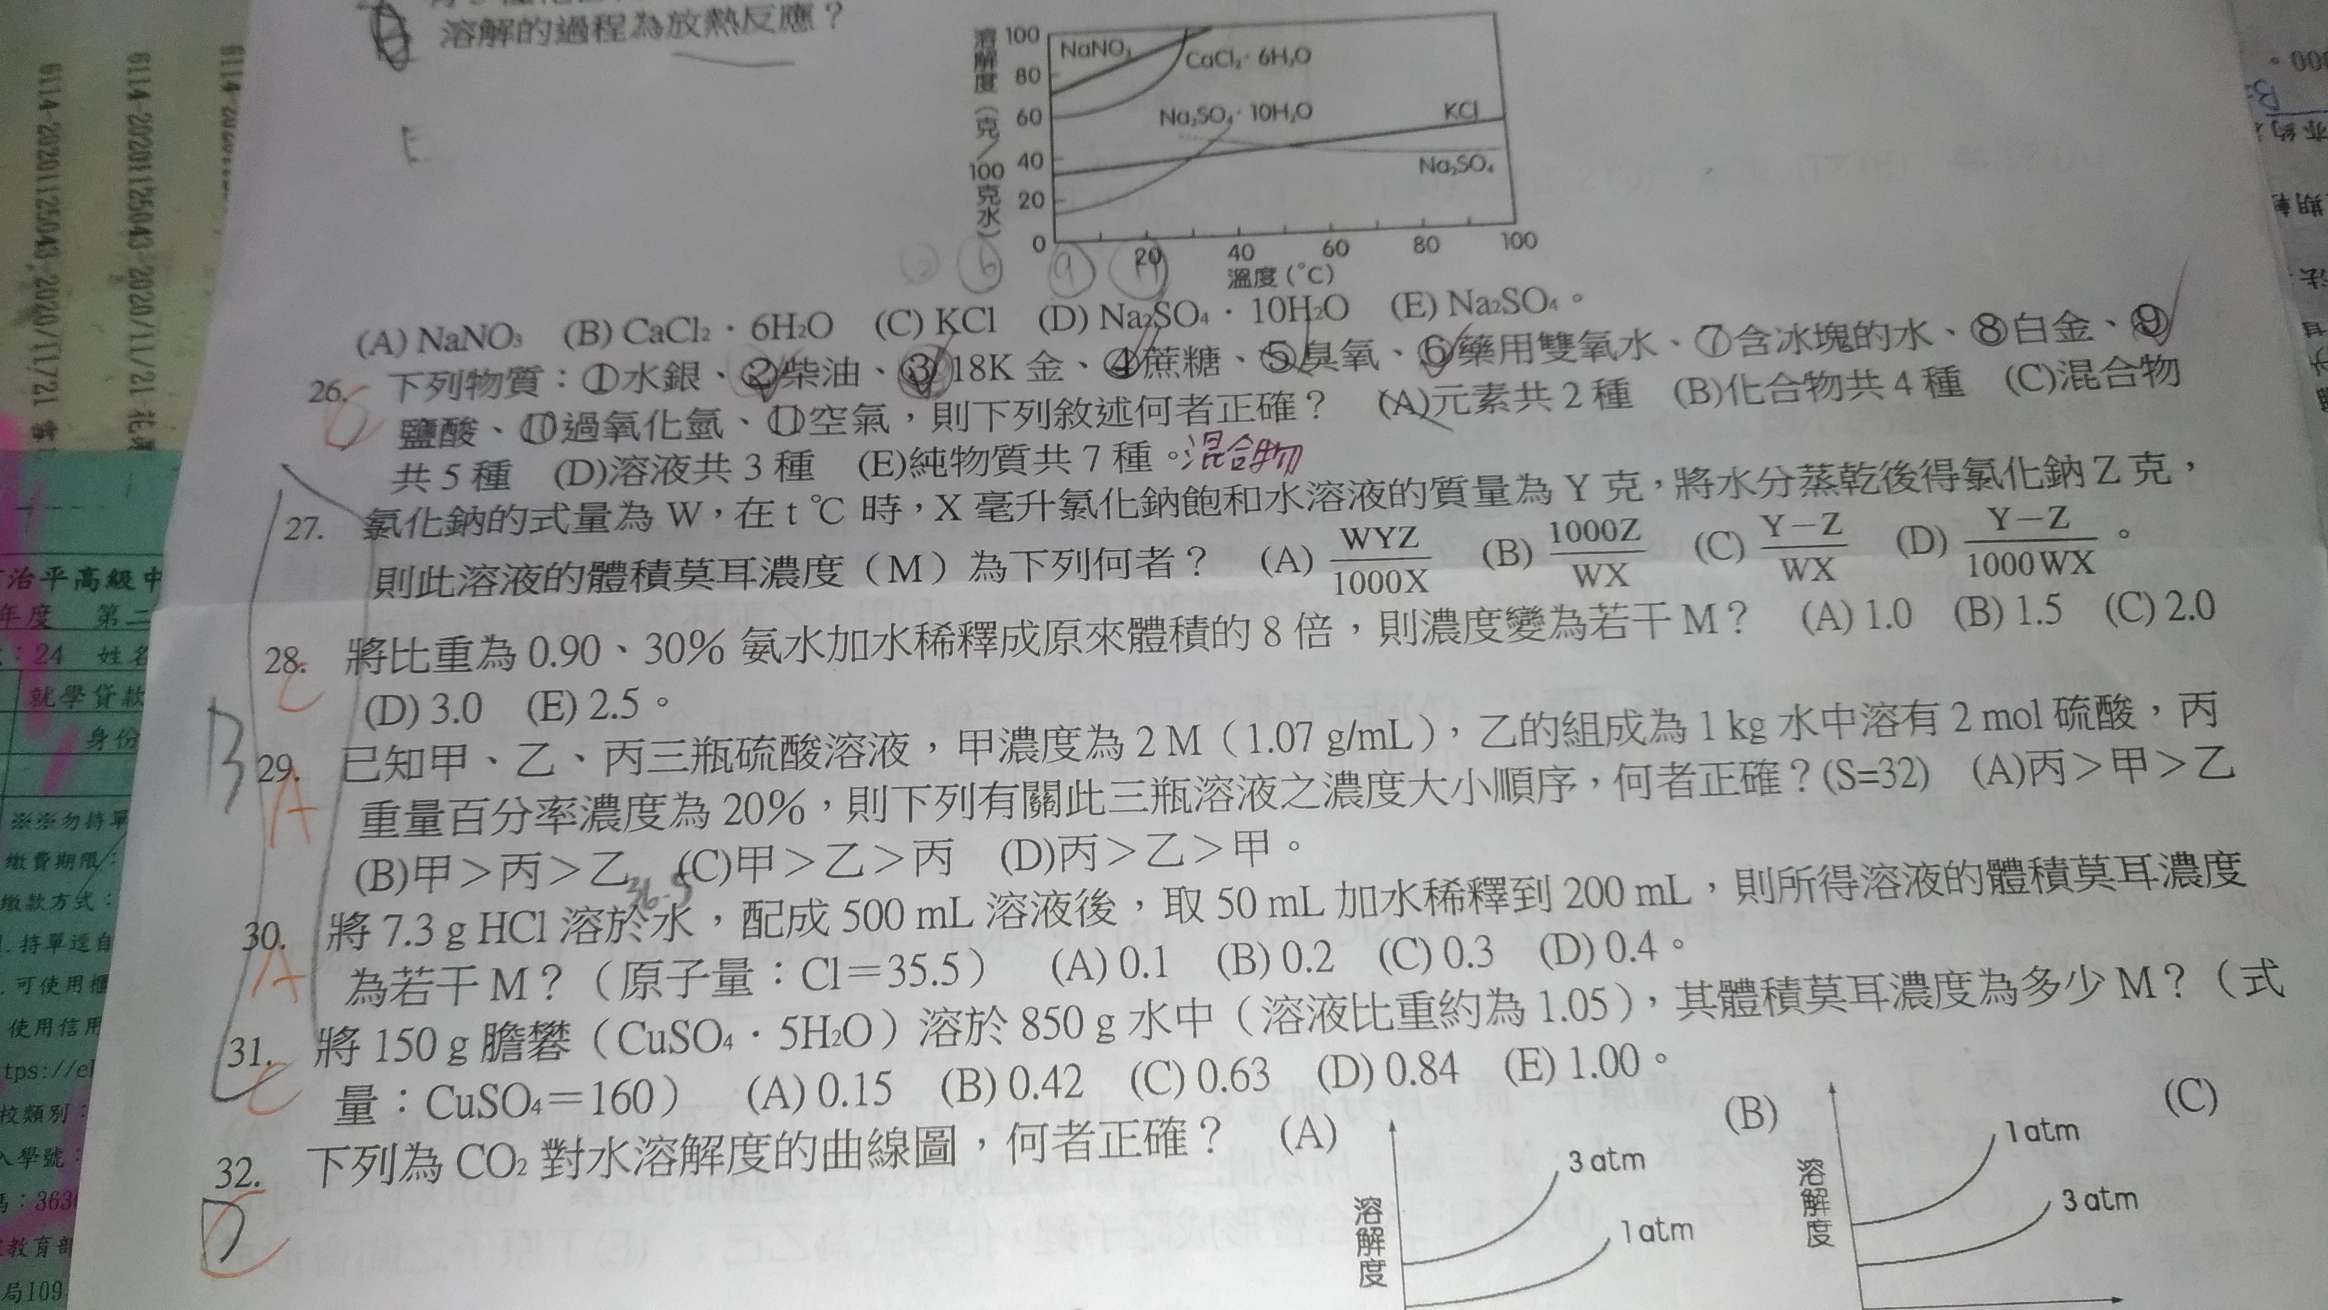 溶解的過程為放熱反應？
溶解度（克／100克水）
100
80
60
40
20
0
NaNO₃
CaCl₂·6H₂O
Na₂SO₄·10H₂O
KCl
Na₂SO₄
20 40 60 80 100
溫度(°C)
(A) NaNO₃ (B) CaCl₂·6H₂O (C) KCl (D) Na₂SO₄·10H₂O (E) Na₂SO₄。
26. 下列物質：①水銀、②柴油、③18K 金、④蔗糖、⑤臭氧、⑥藥用雙氧水、⑦含冰塊的水、⑧白金、⑨
鹽酸、⑩過氧化氫、⑪空氣，則下列敘述何者正確？ (A)元素共 2 種 (B)化合物共 4 種 (C)混合物
共 5 種 (D)溶液共 3 種 (E)純物質共 7 種。混合物
27. 氯化鈉的式量為 W，在 t ℃ 時，X 毫升氯化鈉飽和水溶液的質量為 Y 克，將水分蒸乾後得氯化鈉 Z 克，
則此溶液的體積莫耳濃度（M）為下列何者？ (A) WYZ/1000X (B) 1000Z/WX (C) Y－Z/WX (D) Y－Z/1000WX。
28. 將比重為 0.90、30% 氨水加水稀釋成原來體積的 8 倍，則濃度變為若干 M？ (A) 1.0 (B) 1.5 (C) 2.0
C
(D) 3.0 (E) 2.5。
B
29. 已知甲、乙、丙三瓶硫酸溶液，甲濃度為 2 M（1.07 g/mL），乙的組成為 1 kg 水中溶有 2 mol 硫酸，丙
A
重量百分率濃度為 20%，則下列有關此三瓶溶液之濃度大小順序，何者正確？(S=32) (A)丙＞甲＞乙
(B)甲＞丙＞乙 (C)甲＞乙＞丙 (D)丙＞乙＞甲。
36.5
30. 將 7.3 g HCl 溶於水，配成 500 mL 溶液後，取 50 mL 加水稀釋到 200 mL，則所得溶液的體積莫耳濃度
A
為若干 M？（原子量：Cl＝35.5） (A) 0.1 (B) 0.2 (C) 0.3 (D) 0.4。
31. 將 150 g 膽礬（CuSO₄·5H₂O）溶於 850 g 水中（溶液比重約為 1.05），其體積莫耳濃度為多少 M？（式
C
量：CuSO₄＝160） (A) 0.15 (B) 0.42 (C) 0.63 (D) 0.84 (E) 1.00。
32. 下列為 CO₂ 對水溶解度的曲線圖，何者正確？ (A)
(B)
(C)
溶解度
3 atm
1 atm
溶解度
1 atm
3 atm
治平高級中
年度 第二
24 姓名
就學貸款
身份
※※勿持單
繳費期限：
繳款方式：
.持單逕自
.可使用櫃
使用信用
tps://e
校類別：
入學號：
教育部
局109